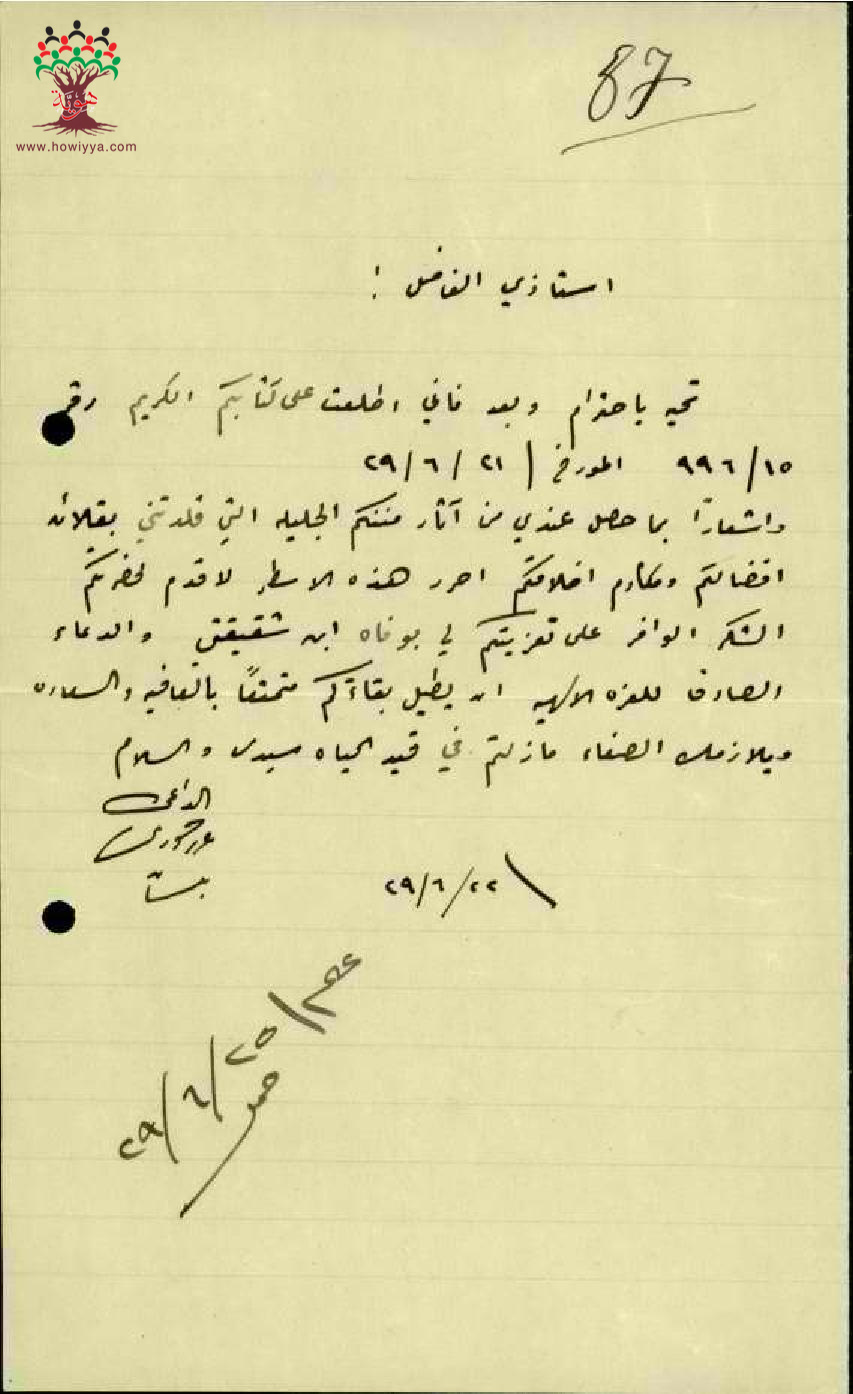 هوية
www.howiyya.com
87
استاذي الفاضل !
تحيه باحترام وبعد فاني اطلعت على كتابكم الكريم رقم
٩٩٦/١٥ المورخ / ٢١/٦/٢٩
واشعارًا بما حصل عندي من آثار مننكم الجليله التي قلدتني بقلائد
افضالكم ومكارم اخلاقكم احرر هذه الاسطر لاقدم لحضرتكم
الشكر الوافر على تعزيتكم لي بوفاه ابن شقيقتي والدعاء
الصادق للعزه الالهيه ان يطيل بقاءكم متمتعًا بالعافيه والسعاده
ويلازمك الصفاء مازلتم في قيد الحياه سيدى والسلام
الداعي
٢٢/٦/٢٩
٢٥/٦/٢٩